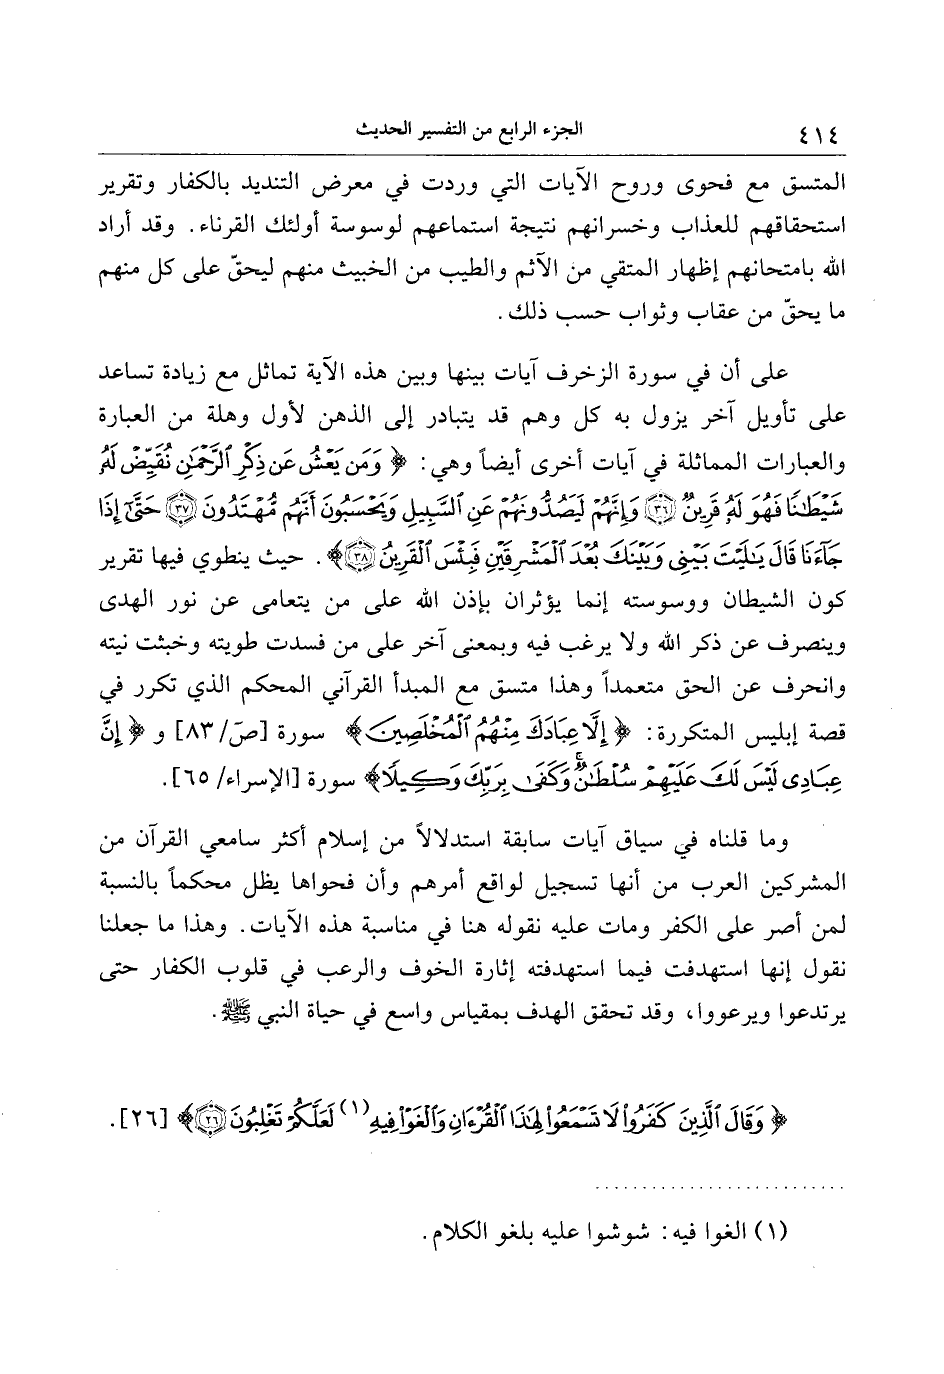 ٤١٤ الجزء الرابع من التفسير الحديث
المتسق مع فحوى وروح الآيات التي وردت في معرض التنديد بالكفار وتقرير
استحقاقهم للعذاب وخسرانهم نتيجة استماعهم لوسوسة أولئك القرناء. وقد أراد
الله بامتحانهم إظهار المتقي من الآثم والطيب من الخبيث منهم ليحقّ على كل منهم
ما يحقّ من عقاب وثواب حسب ذلك.
على أن في سورة الزخرف آيات بينها وبين هذه الآية تماثل مع زيادة تساعد
على تأويل آخر يزول به كل وهم قد يتبادر إلى الذهن لأول وهلة من العبارة
والعبارات المماثلة في آيات أخرى أيضاً وهي: ﴿ وَمَن يَعْشُ عَن ذِكْرِ ٱلرَّحْمَٰنِ نُقَيِّضْ لَهُۥ
شَيْطَٰنًا فَهُوَ لَهُۥ قَرِينٌ ٣٦ وَإِنَّهُمْ لَيَصُدُّونَهُمْ عَنِ ٱلسَّبِيلِ وَيَحْسَبُونَ أَنَّهُم مُّهْتَدُونَ ٣٧ حَتَّىٰٓ إِذَا
جَآءَنَا قَالَ يَٰلَيْتَ بَيْنِى وَبَيْنَكَ بُعْدَ ٱلْمَشْرِقَيْنِ فَبِئْسَ ٱلْقَرِينُ ٣٨﴾. حيث ينطوي فيها تقرير
كون الشيطان ووسوسته إنما يؤثران بإذن الله على من يتعامى عن نور الهدى
وينصرف عن ذكر الله ولا يرغب فيه وبمعنى آخر على من فسدت طويته وخبثت نيته
وانحرف عن الحق متعمداً وهذا متسق مع المبدأ القرآني المحكم الذي تكرر في
قصة إبليس المتكررة: ﴿ إِلَّا عِبَادَكَ مِنْهُمُ ٱلْمُخْلَصِينَ ﴾ سورة [صَ/ ٨٣] و ﴿ إِنَّ
عِبَادِى لَيْسَ لَكَ عَلَيْهِمْ سُلْطَٰنٌ ۚ وَكَفَىٰ بِرَبِّكَ وَكِيلًا﴾ سورة [الإسراء/ ٦٥].
وما قلناه في سياق آيات سابقة استدلالاً من إسلام أكثر سامعي القرآن من
المشركين العرب من أنها تسجيل لواقع أمرهم وأن فحواها يظل محكماً بالنسبة
لمن أصر على الكفر ومات عليه نقوله هنا في مناسبة هذه الآيات. وهذا ما جعلنا
نقول إنها استهدفت فيما استهدفته إثارة الخوف والرعب في قلوب الكفار حتى
يرتدعوا ويرعووا، وقد تحقق الهدف بمقياس واسع في حياة النبي ﷺ.
﴿ وَقَالَ ٱلَّذِينَ كَفَرُوا۟ لَا تَسْمَعُوا۟ لِهَٰذَا ٱلْقُرْءَانِ وَٱلْغَوْا۟ فِيهِ (١) لَعَلَّكُمْ تَغْلِبُونَ ٢٦﴾ [٢٦].
(١) الغوا فيه: شوشوا عليه بلغو الكلام.